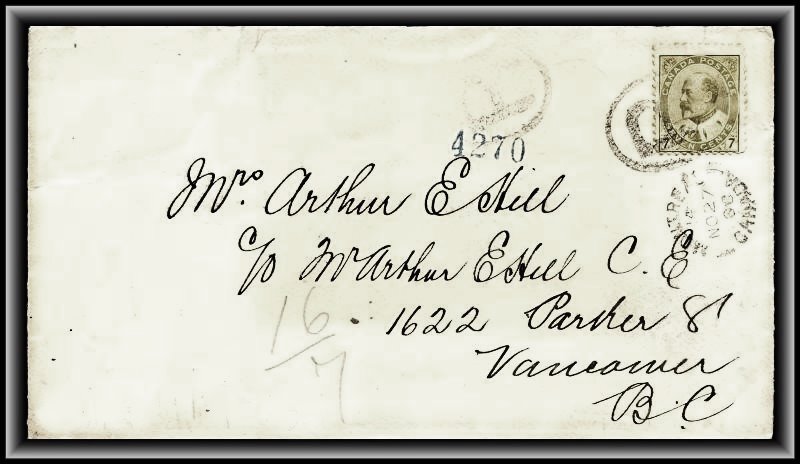 CANADA POSTAGE
SEVEN CENTS
7 7
R
R
4270
MONTREAL CANADA
NO 2
Mrs. Arthur E Hill
c/o Mr Arthur E Hill C. E
1622 Parker St
Vancouver
B. C
16/7